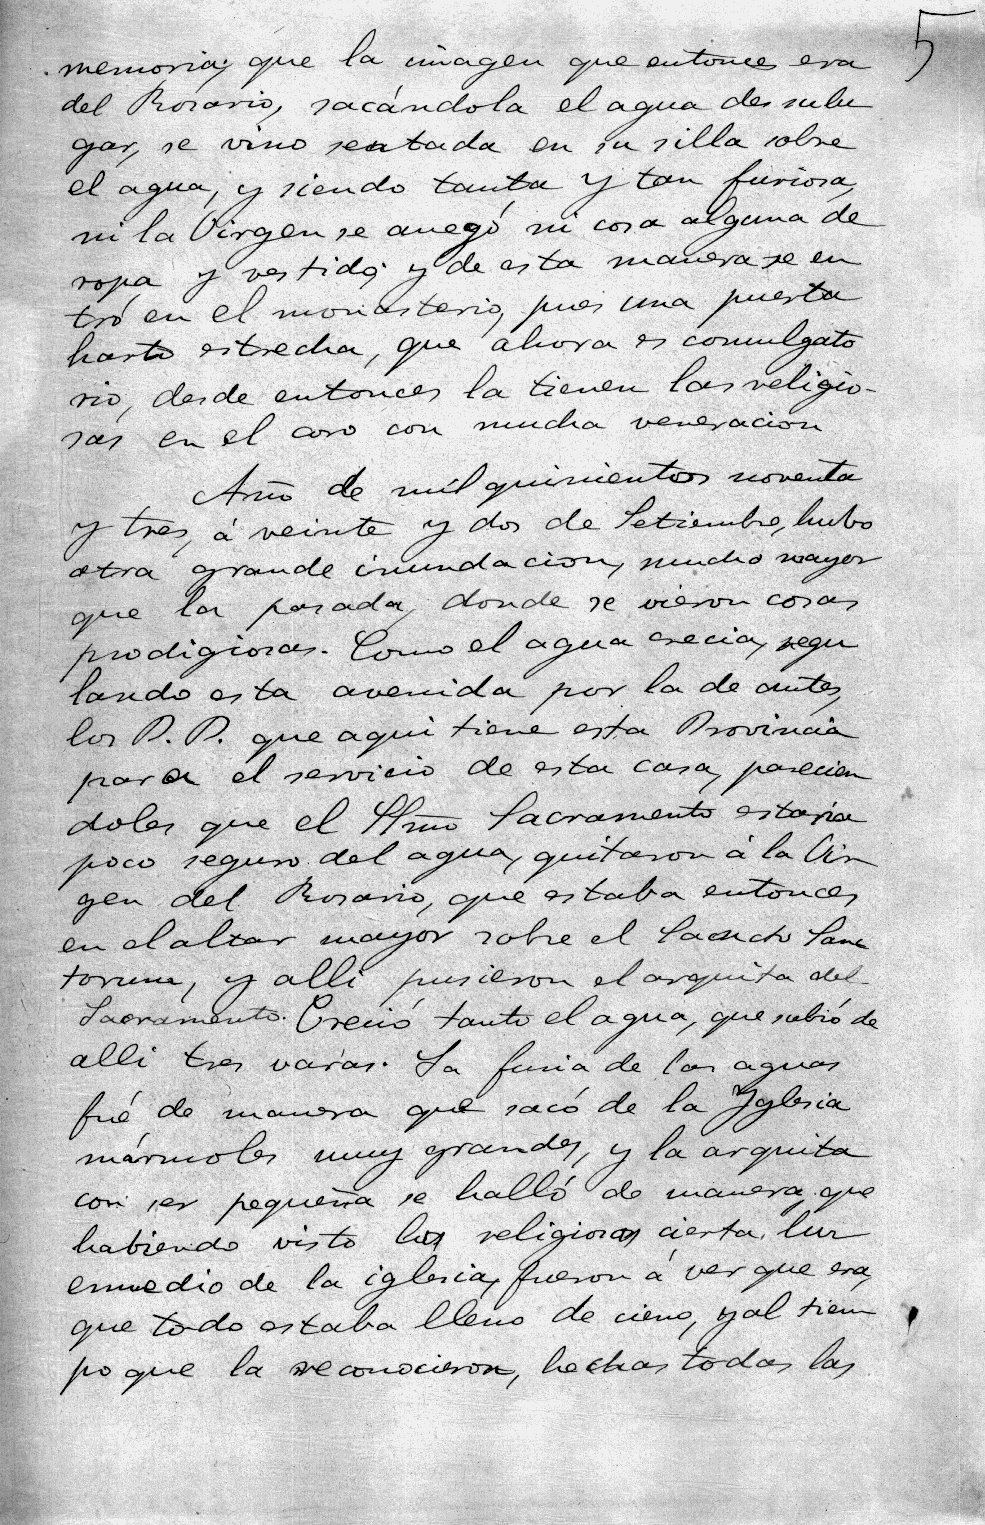 5
memoria; que la imagen que entonces era
del Rosario, sacándola el agua de su lu
gar, se vino sentada en su silla sobre
el agua, y siendo tanta y tan furiosa,
ni la Virgen se anegó ni cosa alguna de
ropa y vestido; y de esta manera se en
tró en el monasterio, pues una puerta
harto estrecha, que ahora es comulgato
rio, desde entonces la tienen las religio-
sas en el coro con mucha veneracion
Año de mil quinientos noventa
y tres, á veinte y dos de Setiembre, hubo
otra grande inundacion, mucho mayor
que la pasada, donde se vieron cosas
prodigiosas. Como el agua crecia, regu
lando esta avenida por la de antes,
los P. P. que aqui tiene esta Provincia
para el servicio de esta casa, parecien
doles que el Smo Sacramento estaria
poco seguro del agua, quitaron á la Vir
gen del Rosario, que estaba entonces
en el altar mayor sobre el Sancto Sanc
torum, y alli pusieron el arquita del
Sacramento. Creció tanto el agua, que subió de
alli tres varas. La furia de las aguas
fué de manera que sacó de la Yglesia
mármoles muy grandes, y la arquita
con ser pequeña se halló de manera, que
habiendo visto los religiosos cierta luz
enmedio de la iglesia, fueron á ver que era,
que todo estaba lleno de cieno, y al tiem
po que la reconocieron, hechas todas las